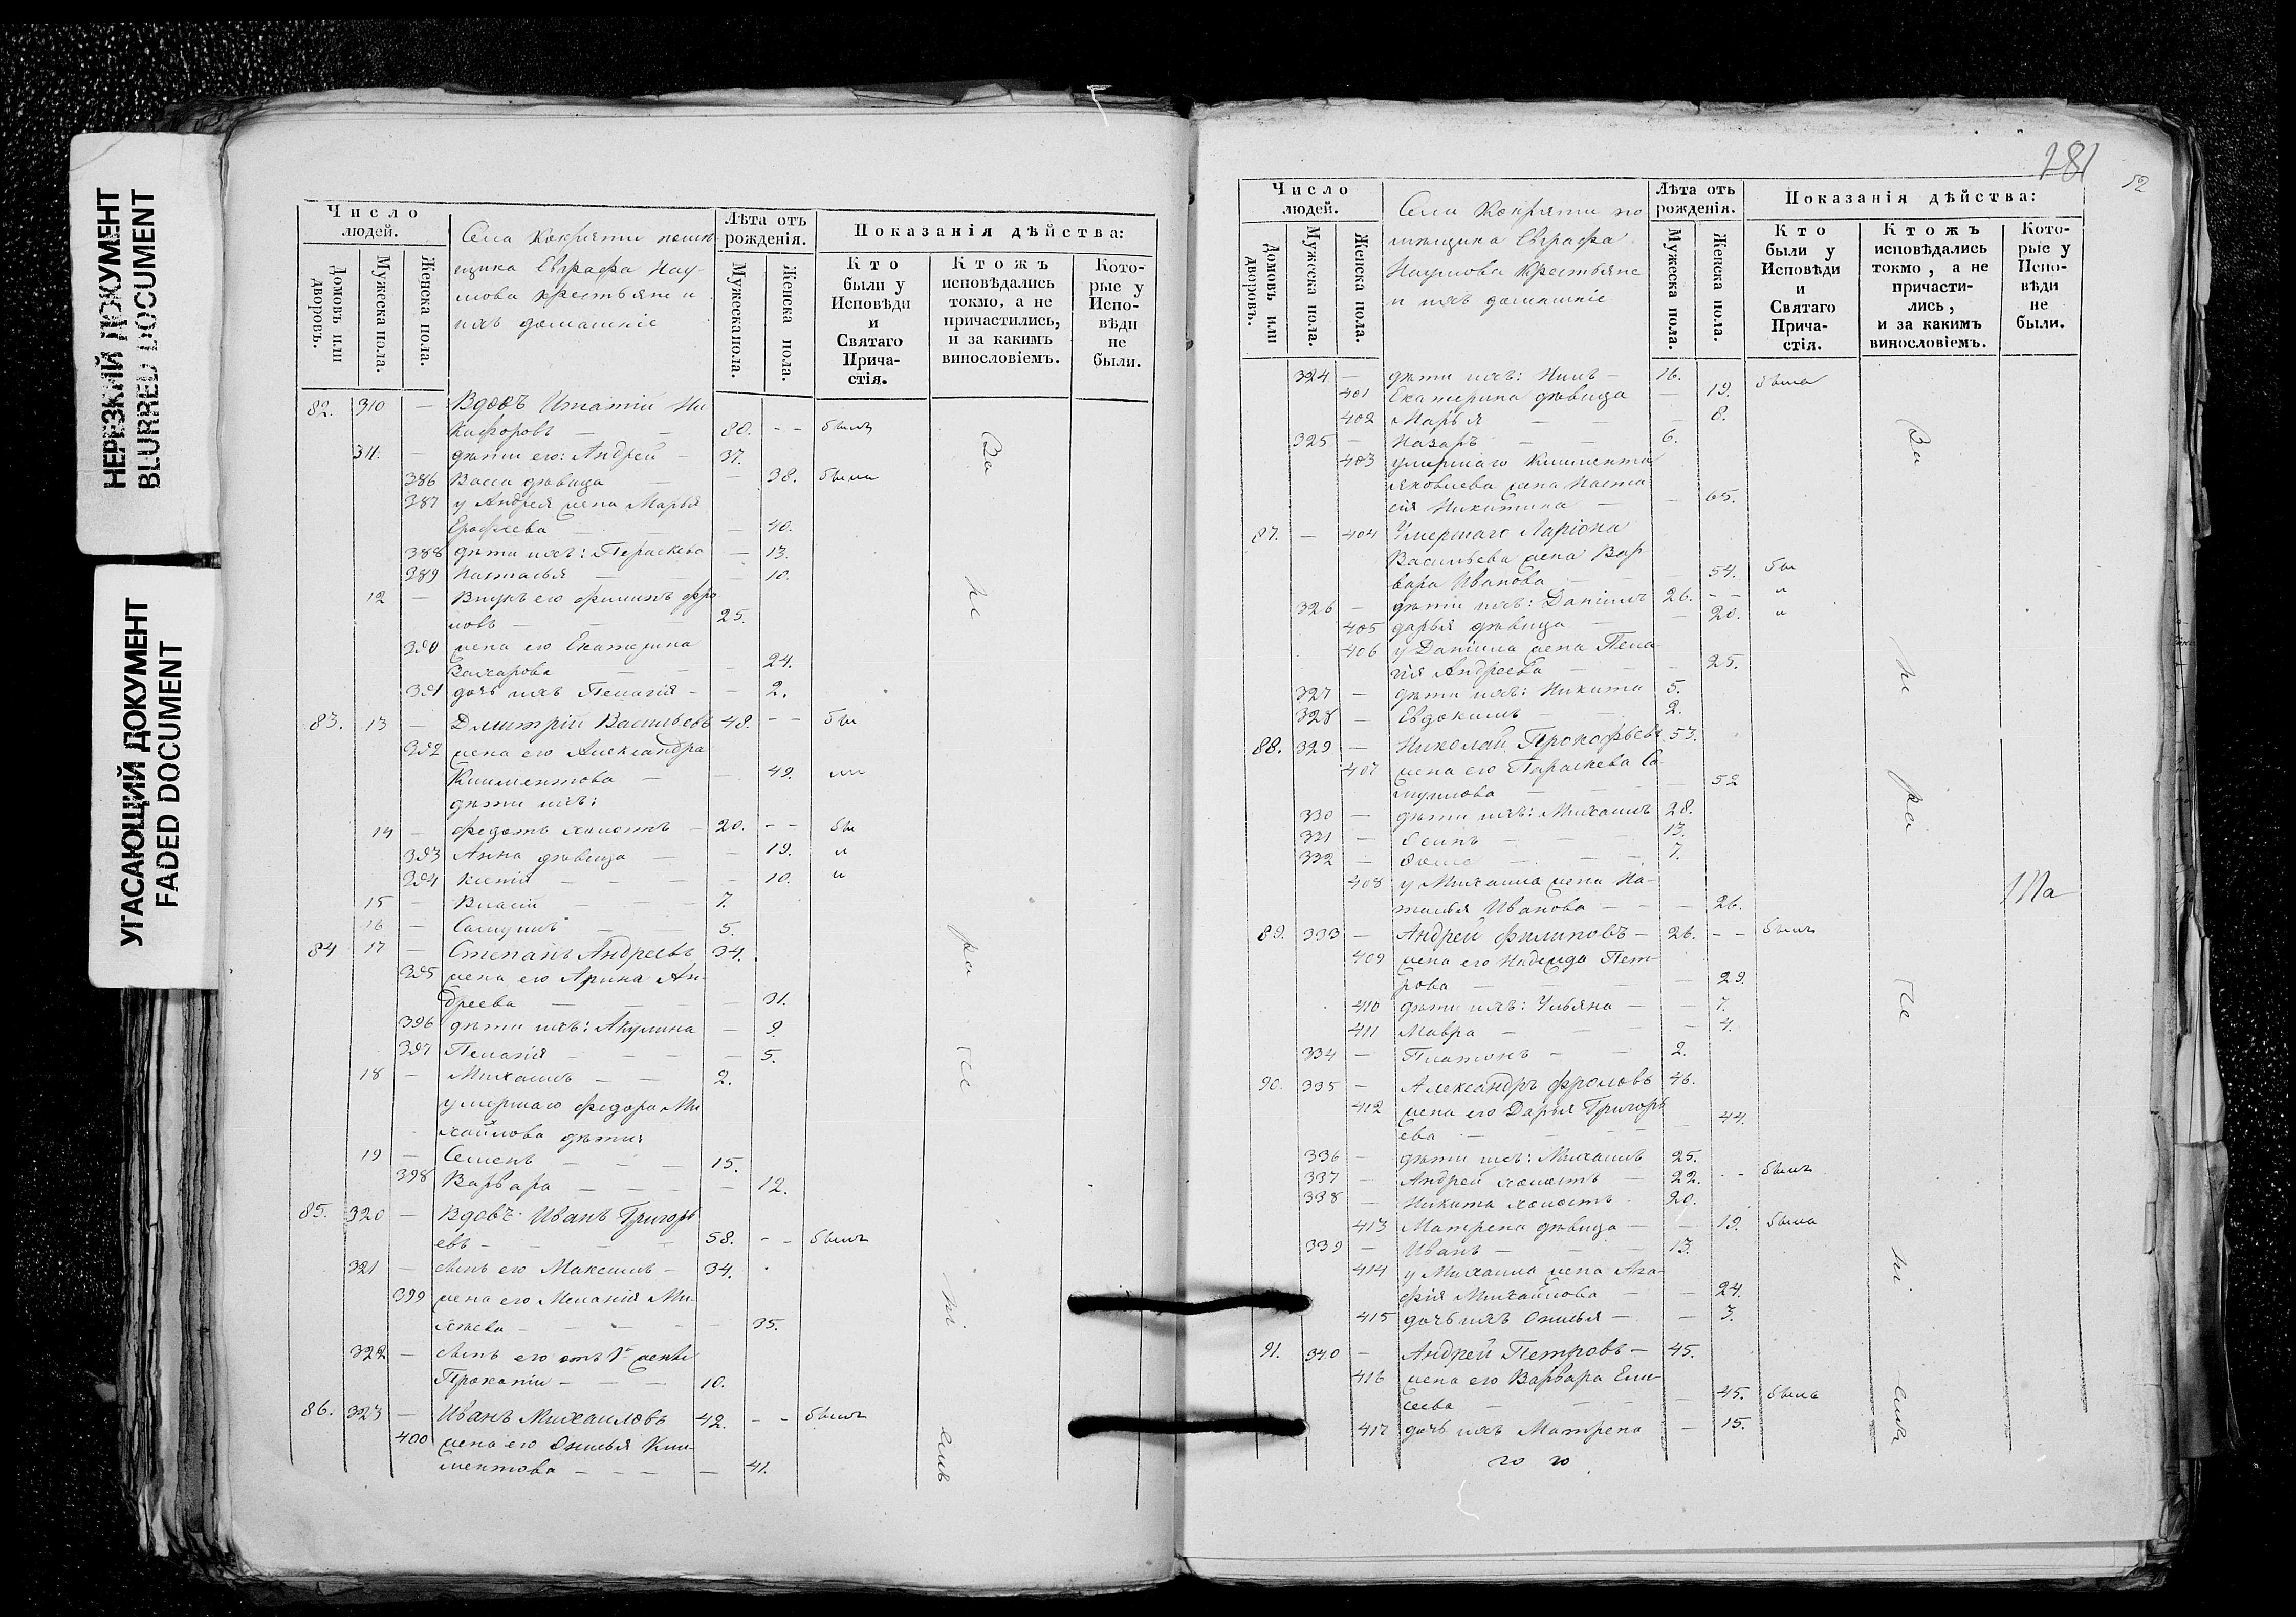 НЕРЕЗКИЙ ДОКУМЕНТ
BLURRED DOCUMENT
УГАСАЮЩИЙ ДОКУМЕНТ
FADED DOCUMENT
Число людей.
Домовъ или дворовъ.
Мужеска пола.
Женска пола.
Села Кокряти помѣ
щика Евграфа Нау-
мова крестьяне и
ихъ домашніе
Лѣта отъ рожденія.
Мужеска пола.
Женска пола.
Показанія дѣйства:
Кто были у Исповѣди и Святаго Прича-стія.
Ктожъ исповѣдались токмо, а не причастились, и за какимъ винословіемъ.
Кото-рые у Испо-вѣди не были.
82. 310 — Вдовъ Игнатій Ни
кифоровъ — — 80. - - былъ
311. — дѣти его: Андрей — 37.
386 Васса дѣвица — — 38. была
387 у Андрея жена Марья
Ерофеева — — 40.
388 дѣти ихъ: Параскева — 13.
389 Наталья — — 10.
12 — Внукъ его Филипъ Фро
ловъ — — 25.
390 жена его Екатерина
Захарова — — 24.
391 дочь ихъ Пелагія — — 2.
83. 13 — Дмитрій Васильевъ 48. - - бы
392 жена его Александра
Климентова — — 49. ли
дѣти ихъ:
14 — Федотъ холостъ — 20. - - бы
393 Анна дѣвица — — 19. л
394 Ксенія — — — 10. и
15 — Власій — — 7.
16 — Самуилъ — — 5.
84 17 — Степанъ Андреевъ 34.
395 жена его Арина Ан-
дреева — — — 31.
396 дѣти ихъ: Акулина — 9.
397 Пелагія — — — 5.
18 — Михаилъ — — 2.
умершаго Федора Ми
хайлова дѣти:
19 — Семенъ — — — 15.
398 Варвара — — — 12.
85. 320 — Вдовъ Иванъ Григорь
евъ — — — 58. - - былъ
321 — сынъ его Максимъ — 34.
399 жена его Меланія Ми-
хеева — — — — 35.
322 — сынъ его отъ 1й жены
Прокопій — — — 10.
86. 323 — Иванъ Михаиловъ 42. - - былъ
400 жена его Онисья Кли-
ментова — — — — 41.
За
не
ра
че
ні
емъ
281
52
Число людей.
Домовъ или дворовъ.
Мужеска пола.
Женска пола.
Села Кокряти по
мѣщика Евграфа
Наумова крестьяне
и ихъ домашніе
Лѣта отъ рожденія.
Мужеска пола.
Женска пола.
Показанія дѣйства:
Кто были у Исповѣди и Святаго Прича-стія.
Ктожъ исповѣдались токмо, а не причасти-лись, и за какимъ винословіемъ.
Кото-рые у Испо-вѣди не были.
324 — дѣти ихъ: Нилъ — 16.
401 Екатерина дѣвица — 19. была
402 Марья — — — 8.
325 — Назаръ — — 6.
403 умершаго Климента
Яковлева жена Наста
сія Никитина — — 65.
87. — 404 Умершаго Ларіона
Васильева жена Вар
вара Иванова — — 54. бы
326 — дѣти ихъ: Даніилъ 26. - - л
405 Дарья дѣвица — — 20. и
406 у Даніила жена Пела-
гія Андреева — — 25.
327 — дѣти ихъ: Никита 5.
328 — Евдокимъ — — 2.
88. 329 — Николай Прокофьевъ 53.
407 жена его Параскева Са
муилова — — — 52
330 — дѣти ихъ: Михаилъ 28.
331 — Осипъ — — 13.
332 — — — 7.
408 у Михаила жена На-
талья Иванова — — 26.
89. 333 — Андрей Филиповъ — 26. - - былъ
409 жена его Надежда Пет-
рова — — — 29.
410 дѣти ихъ: Ульяна — — 7.
411 Мавра — — — 4.
334 — Платонъ — — 2.
90. 335 — Александръ Фроловъ 46.
412 жена его Дарья Григорь
ева — — — 44.
336 — дѣти ихъ: Михаилъ 25.
337 — Андрей холостъ — 22. - - былъ
338 — Никита холостъ 20.
413 Матрена дѣвица — — 19. была
339 — Иванъ — — 13.
414 у Михаила жена Ага-
фія Михайлова — — 24.
415 дочь ихъ Онисья — — 3.
91. 340 — Андрей Петровъ — 45.
416 жена его Варвара Ели-
сеева — — — 45. была
417 дочь ихъ Матрена — 15.
За
не
ра
че
ні
емъ